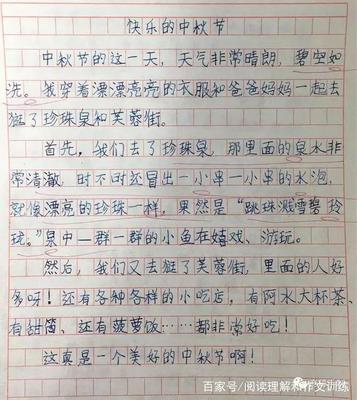 快乐的中秋节
中秋节的这一天，天气非常晴朗，碧空如
洗。我穿着漂漂亮亮的衣服和爸爸妈妈一起去
逛了珍珠泉和芙蓉街。
首先，我们去了珍珠泉，那里面的泉水非
常清澈，时不时还冒出一小串一小串的水泡，
就像漂亮的珍珠一样。果然是“跳珠溅雪碧玲
珑。”泉中一群一群的小鱼在嬉戏、游玩。
然后，我们又去逛了芙蓉街，里面的人好
多呀！还有各种各样的小吃店，有阿水大杯茶、
有甜筒、还有菠萝饭……都非常好吃！
这真是一个美好的中秋节啊！
百家号/阅读理解和作文训练